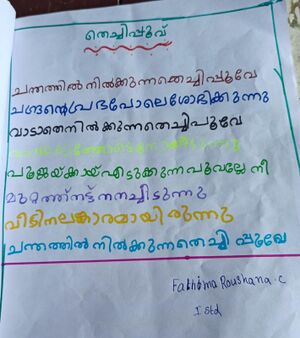 തെച്ചിപ്പൂവ്
ചന്തത്തിൽ നിൽക്കുന്നതെച്ചിപ്പൂവേ
ചന്ദ്രൻ്റെപ്രഭപോലെശോഭിക്കുന്നു
വാടാതെനിൽക്കുന്നതെച്ചിപൂവേ
പൂജയ്ക്കായ്എടുക്കുന്നപൂവല്ലേ നീ
മുറ്റത്ത്നട്ട്നനച്ചിടുന്നു
വീടിനലങ്കാരമായിരുന്നു
ചന്തത്തിൽ നിൽക്കുന്നതെച്ചിപ്പൂവേ
Fathima Roushana.C
I std